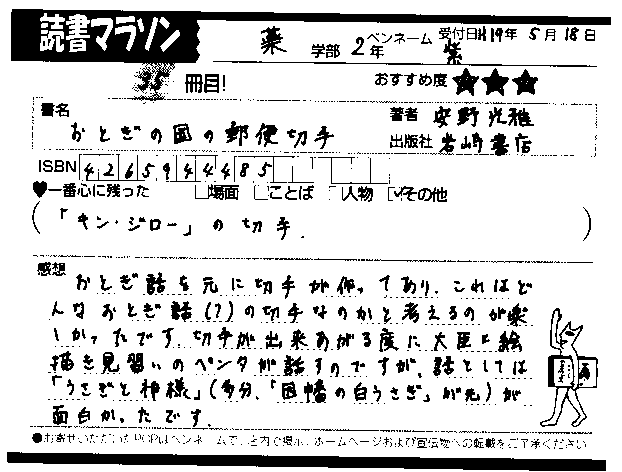 読書マラソン
薬 学部 2年 ペンネーム 紫 受付日H19年 5月 18日
35 冊目! おすすめ度 ★★★
書名 おとぎの国の郵便切手
著者 安野光雅
出版社 岩崎書店
ISBN 4265944485
♥一番心に残った □場面 □ことば □人物 ☑その他
(「キン・ジロー」の切手.)
感想
おとぎ話を元に切手が作ってあり、これはど
んなおとぎ話(?)の切手なのかと考えるのが楽
しかったです。切手が出来あがる度に大臣と絵
描き見習いのペンタが話すのですが、話としては
「うさぎと神様」(多分、「因幡の白うさぎ」が元)が
面白かったです.
●お寄せいただいたPOPはペンネームで、と内で掲示、ホームページおよび宣伝物への転載をご了承ください